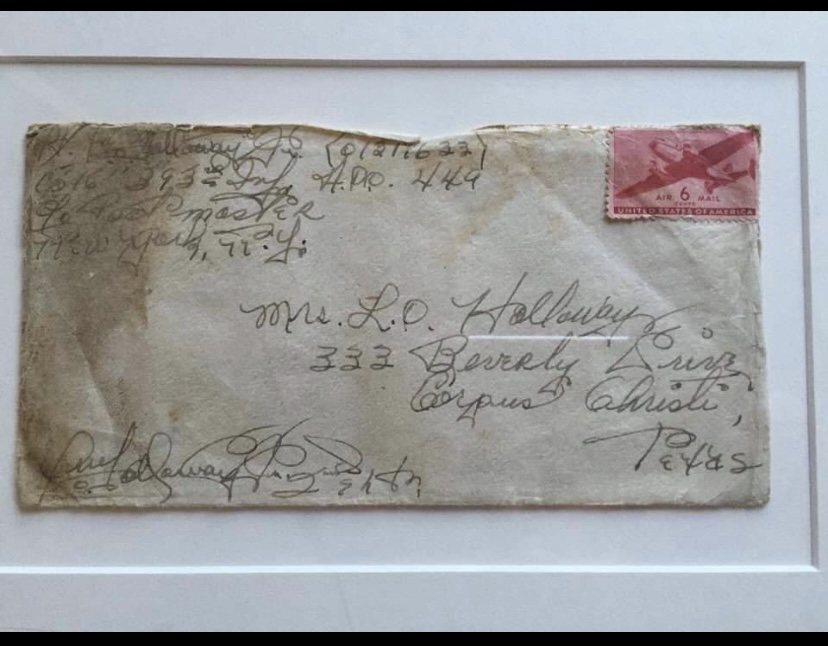 Holloway Jr. (01217633)
Co "G" 393rd Inf. A.P.O. 449
c/o Postmaster
New York, N.Y.
AIR 6 MAIL
CENTS
UNITED STATES OF AMERICA
Mrs. L.O. Holloway
333 Beverly Drive
Corpus Christi,
Texas
Holloway